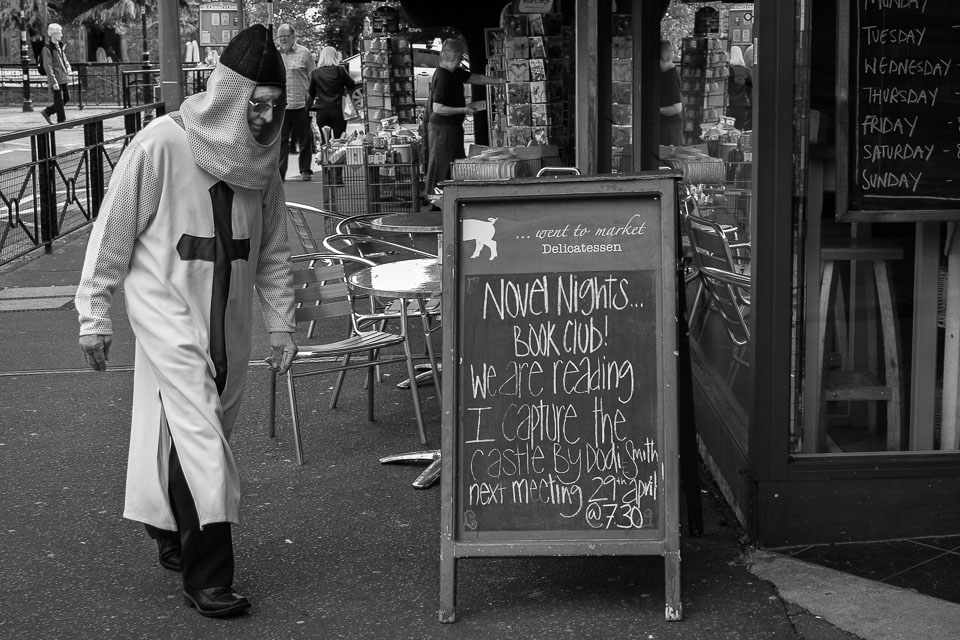 ... went to market
Delicatessen
Novel Nights...
Book Club!
We are reading
I capture the
castle By Dodi Smith
next meeting 29th april
@7.30
MONDAY
TUESDAY
WEDNESDAY -
THURSDAY
FRIDAY -
SATURDAY -
SUNDAY